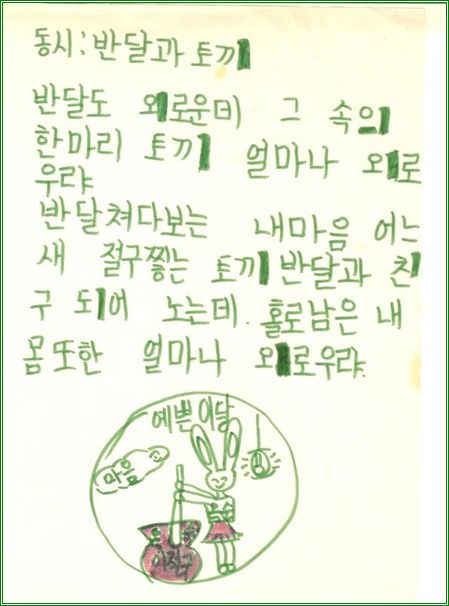 동시:반달과 토끼
반달도 외로운데 그 속의
한마리 토끼 얼마나 외로
우랴
반달쳐다보는 내마음 어느
새 절구찧는 토끼 반달과 친
구 되어 노는데. 홀로남은 내
몸또한 얼마나 외로우랴.
예쁜이달
마음